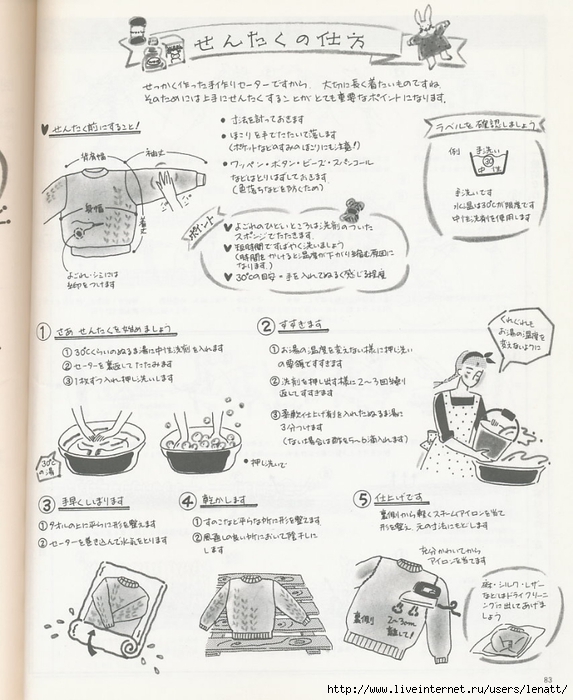 せんたくの仕方
せっかく作った手作りセーターですから、大切に長く着たいものですね。
そのためには上手にせんたくすることがとても重要なポイントになります。
♥せんたく前にすること!
背肩幅
袖丈
身幅
着丈
よごれ・シミには
糸印をつけます
●寸法を計っておきます
●ほこりを手でたたいて落します
(ポケットなどのすみのほこりにも注意!)
●ワッペン・ボタン・ビーズ・スパンコール
などはとりはずしておきます
(色落ちなどを防ぐため)
ラベルを確認しましょう
例
手洗い
30
中性
手洗いです
水温は30℃が限度です
中性洗剤を使用します
ポイント
♥よごれのひどいところは洗剤のついた
スポンジでたたきます。
♥短時間ですばやく洗いましょう
(時間をかけると温度が下がり縮む原因に
なります。)
♥30℃の目安=手を入れてぬるく感じる程度
①さあ せんたくを始めましょう
①30℃くらいのぬるま湯に中性洗剤を入れます
②セーターを裏返してたたみます
③1枚ずつ入れ押し洗いします
30℃の湯
●押し洗いで
②すすぎます
①お湯の温度を変えない様に押し洗い
の要領ですすぎます
②洗剤を押し出す様に2〜3回繰り
返してすすぎます
③柔軟仕上げ剤を入れたぬるま湯に
3分つけます
(ない場合は酢を5〜6滴入れます)
くれぐれも
お湯の温度を
変えないように
③手早くしぼります
①タオルの上に平らに形を整えます
②セーターを巻き込んで水気をとります
④乾かします
①すのこなど平らな所に形を整えます
②風通しの良い所において陰干しに
します
⑤仕上げです
裏側から軽くスチームアイロンを当て
形を整え、元の寸法にもどします
充分かわいてから
アイロンを当てます
裏側
2〜3cm
離して!
麻・シルク・レザー
などはドライクリーニ
ングに出してあげま
しょう
83
http://www.liveinternet.ru/users/lenatt/